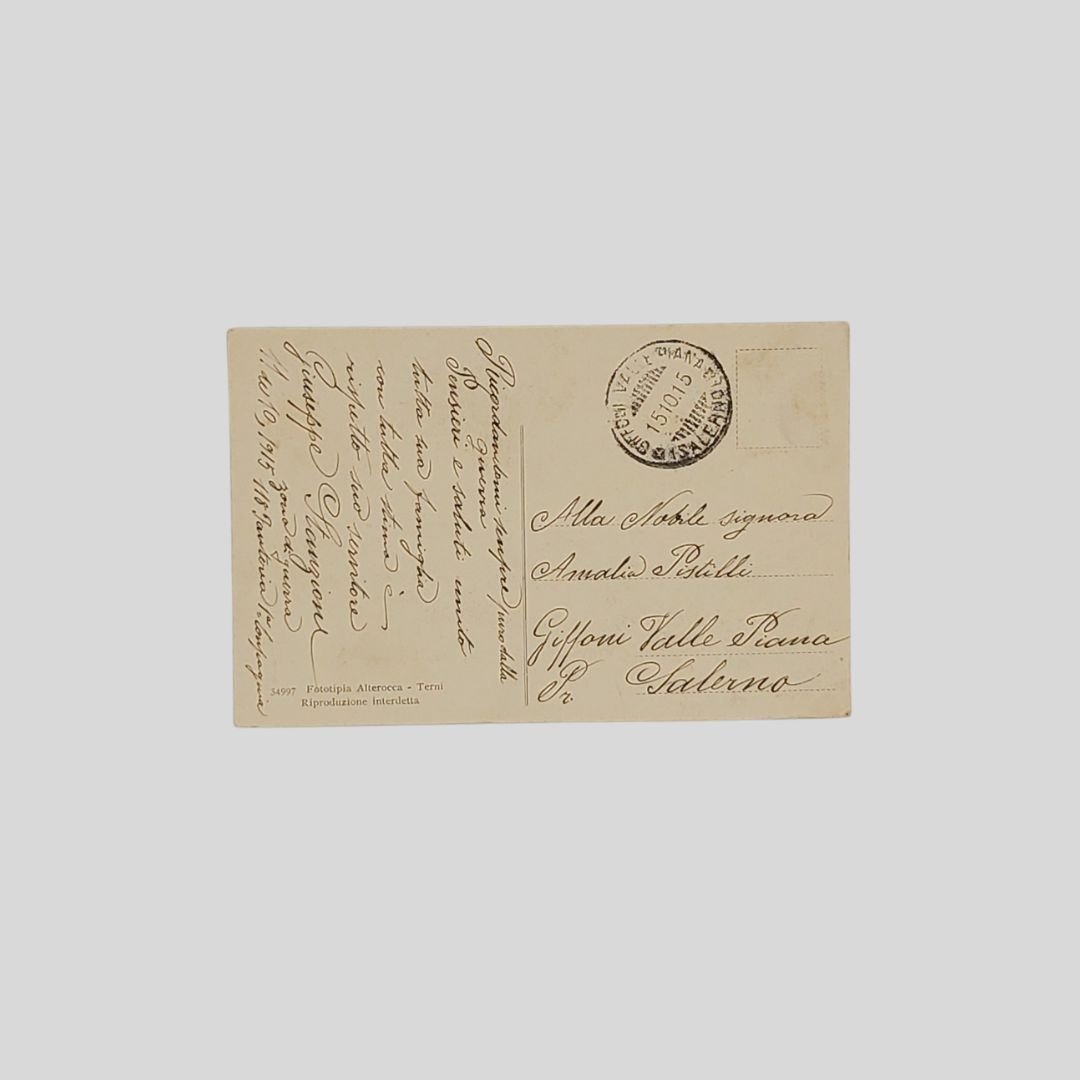 Ricordandomi sempre puro dalla
guerra
Pensieri e saluti unito
tutta sua famiglia
con tutta stima è
rispetto suo servitore
Giuseppe Stanzione
11 10, 1915 zona di guerra
118 Fanteria 1ª Compagnia
GIFFONI VALLE PIANA
15.10.15
(SALERNO)
Alla Nobile signora
Amalia Pistilli
Giffoni Valle Piana
Pr. Salerno
34997 Fototipia Alterocca - Terni
Riproduzione interdetta